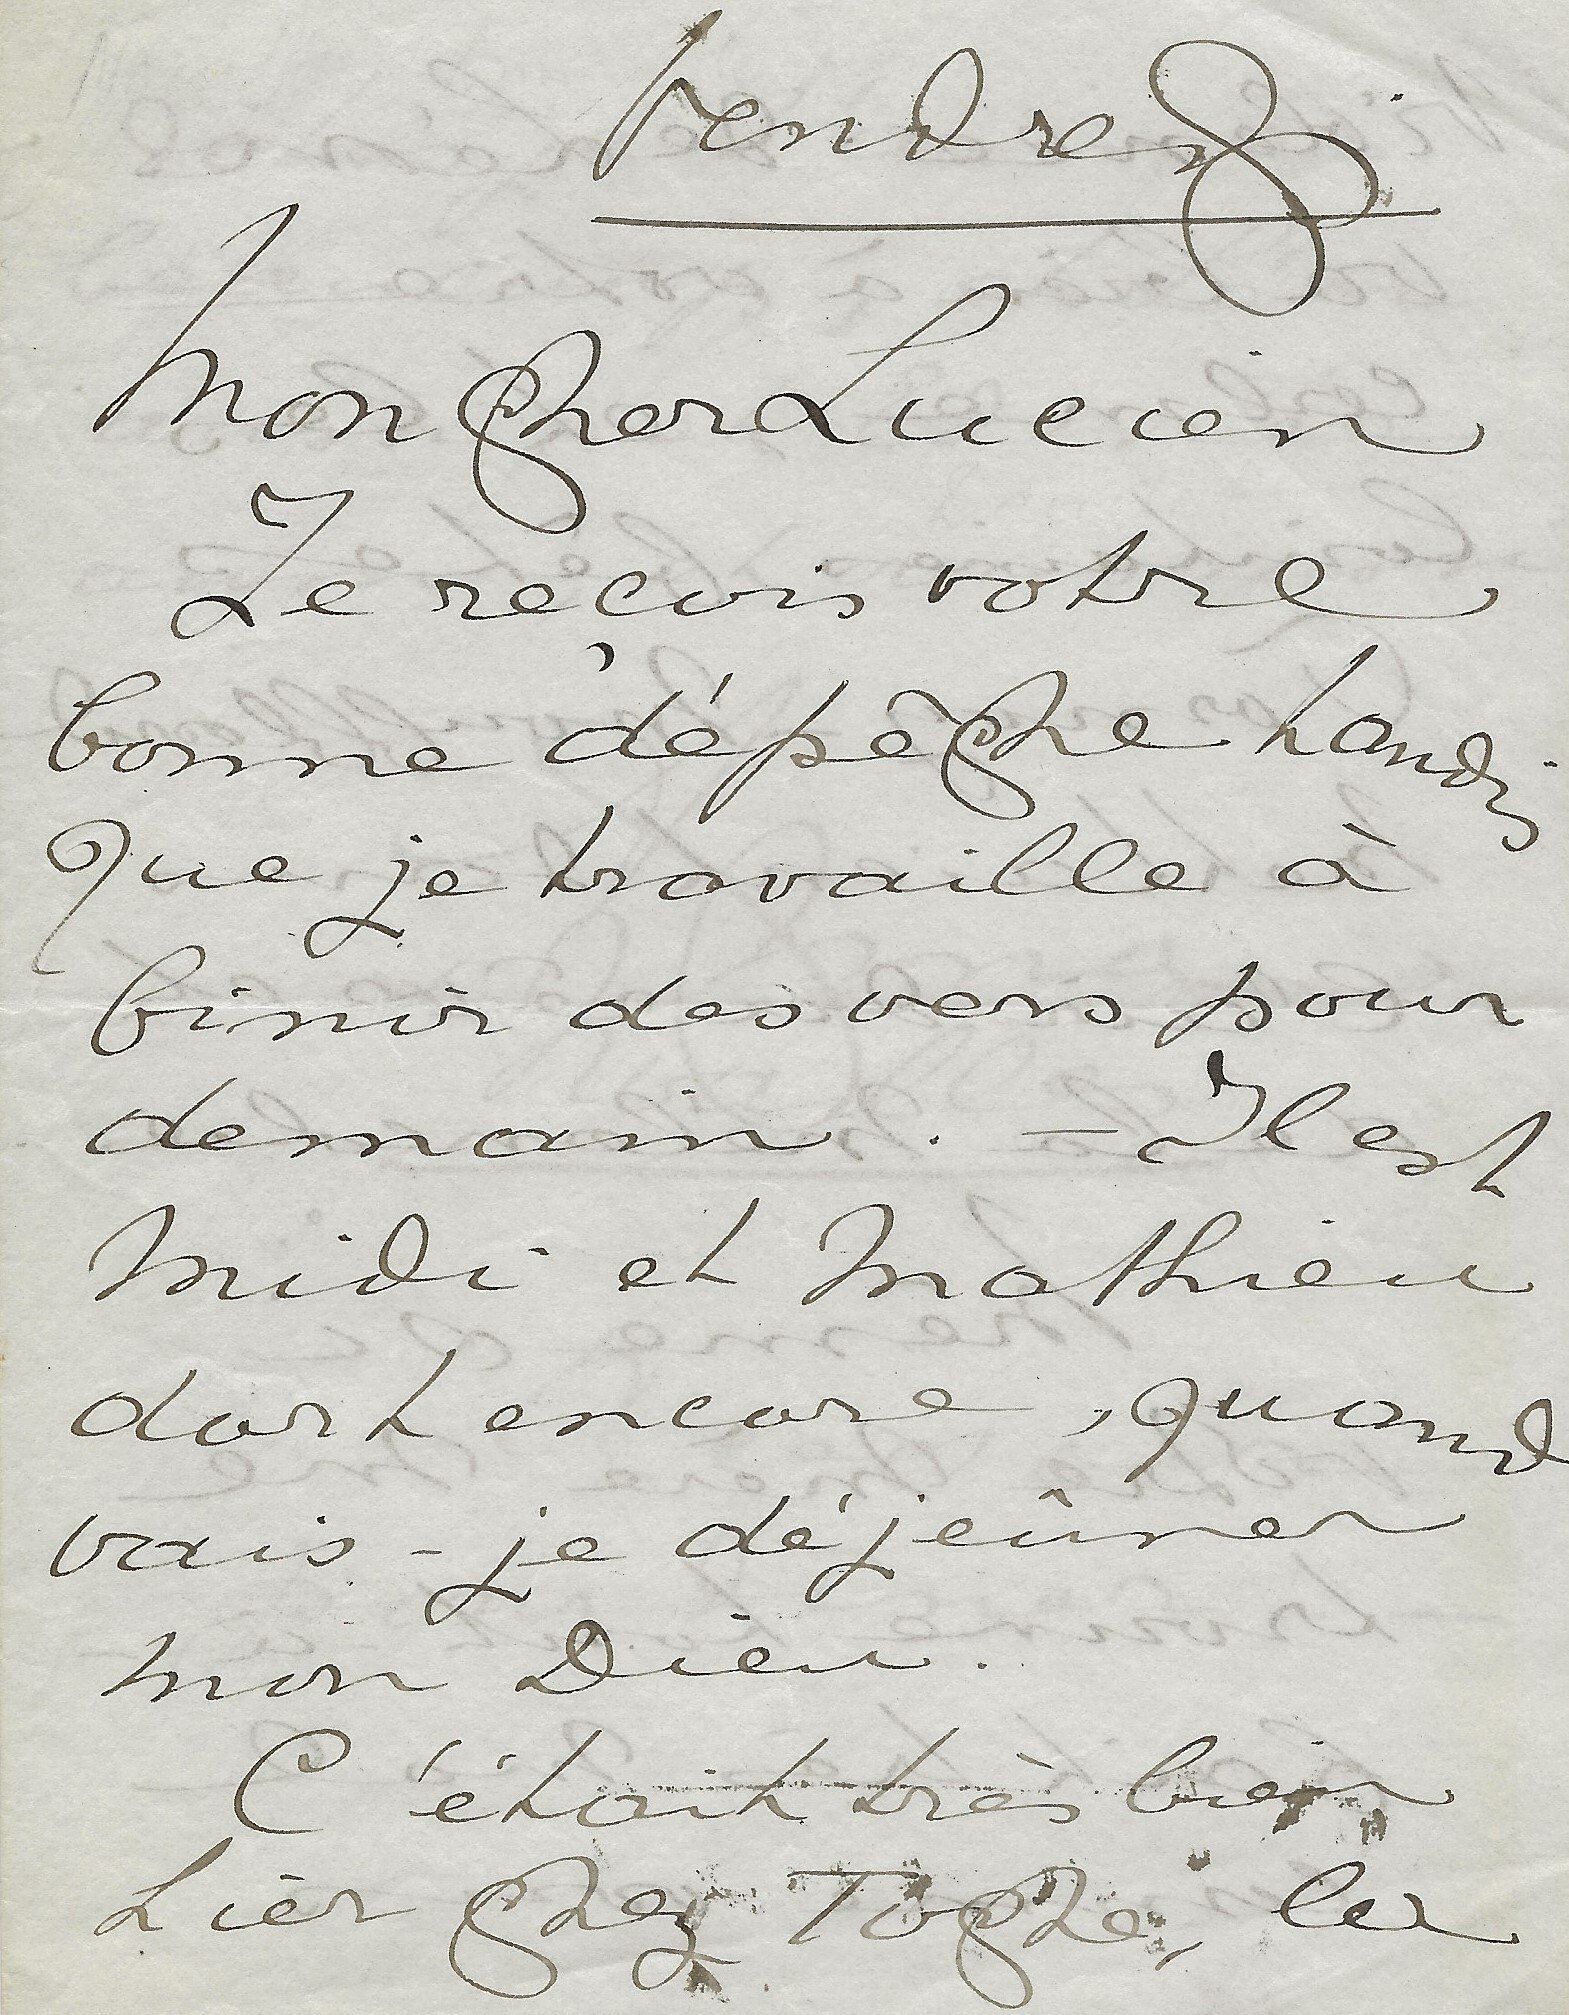 Vendredi
Mon cher Lucien
Je reçois votre
bonne dépêche tandis
que je travaille à
finir des vers pour
demain. — Il est
midi et Mathieu
dort encore, quand
vais-je déjeûner
mon Dieu.
C'était très bien
hier chez Toche, les